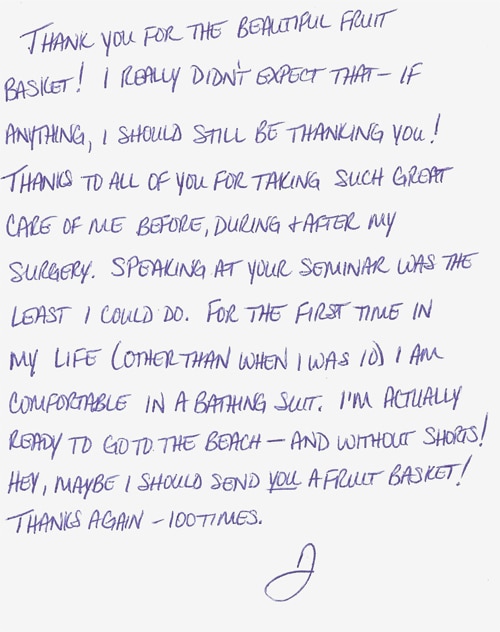 THANK YOU FOR THE BEAUTIFUL FRUIT
BASKET! I REALLY DIDN'T EXPECT THAT - IF
ANYTHING, I SHOULD STILL BE THANKING YOU!
THANKS TO ALL OF YOU FOR TAKING SUCH GREAT
CARE OF ME BEFORE, DURING + AFTER MY
SURGERY. SPEAKING AT YOUR SEMINAR WAS THE
LEAST I COULD DO. FOR THE FIRST TIME IN
MY LIFE (OTHER THAN WHEN I WAS 10) I AM
COMFORTABLE IN A BATHING SUIT. I'M ACTUALLY
READY TO GO TO THE BEACH - AND WITHOUT SHORTS!
HEY, MAYBE I SHOULD SEND YOU A FRUIT BASKET!
THANKS AGAIN - 100 TIMES.